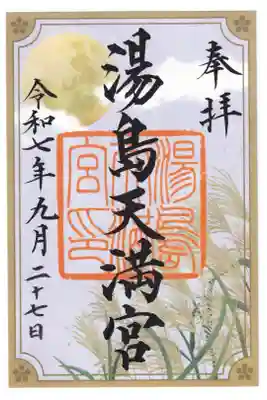 奉拝
湯島天満宮
湯島
天満
宮印
令和七年九月二十七日